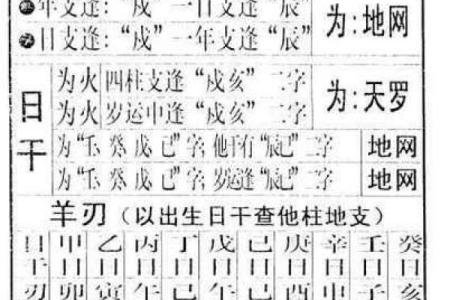 年支逢：“戌” 一日支逢“辰”
日支逢：“戌” 一年支逢“辰”
为：地网
日干
为火 四柱支逢“戌亥” 二字
为火 岁运中逢“戌亥” 二字
为：天罗
为“壬、癸、戊、己”字，他干有“辰巳”二字 地网
为“壬、癸、戊、己”字，岁运逢“辰巳”二字 地网
羊刃（以出生日干查他柱地支）
日干 甲日 乙日 丙日 丁日 戊日 己日 庚日 辛日 壬日 癸日
刃 卯 寅 午 巳 午 巳 酉 申 子 亥